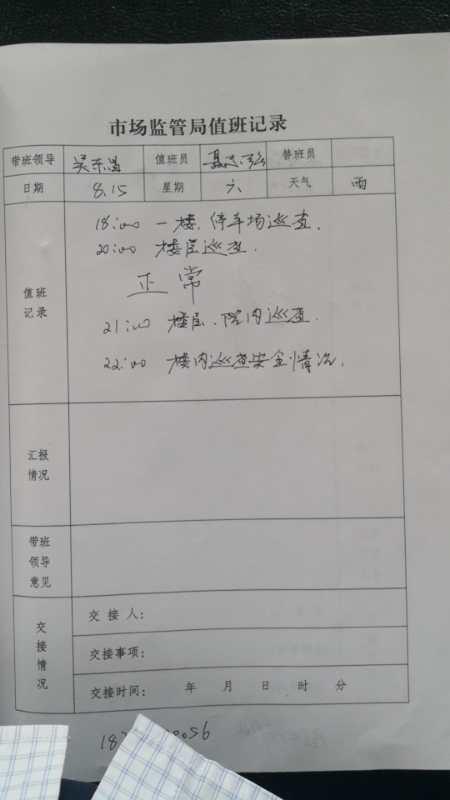 市场监管局值班记录
带班领导 吴东昌 值班员 替班员
日期 8.15 星期 六 天气 雨
值班记录
18:00 一楼、停车场巡查.
20:00 楼层巡查.
正常
21:00 楼层、院内巡查.
22:00 楼内巡查安全情况.
汇报情况
带班领导意见
交接情况
交接人:
交接事项:
交接时间: 年 月 日 时 分